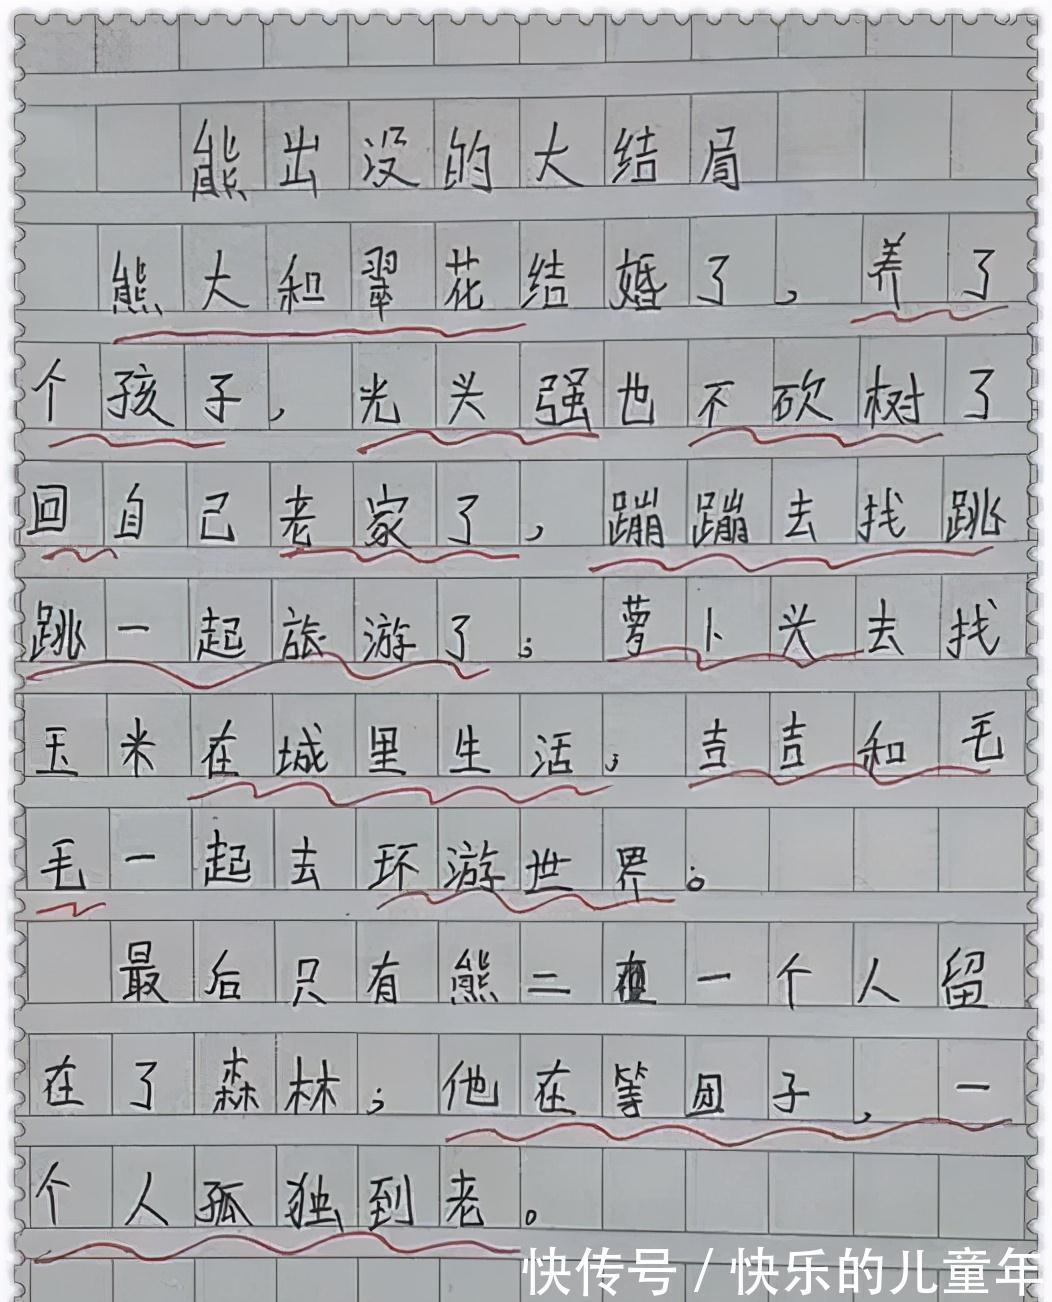 熊出没的大结局
熊大和翠花结婚了，养了
个孩子，光头强也不砍树了
回自己老家了，蹦蹦去找跳
跳一起旅游了；萝卜头去找
玉米在城里生活，吉吉和毛
毛一起去环游世界。
最后只有熊二一个人留
在了森林；他在等团子，一
个人孤独到老。
快传号/快乐的儿童年